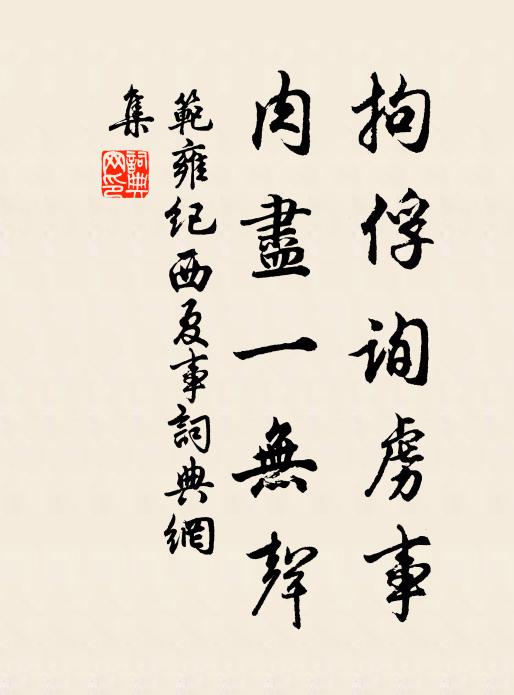 拘俘詢虜事
肉盡一無聲
範雍紀西夏事詞典網
集
詞典
網印